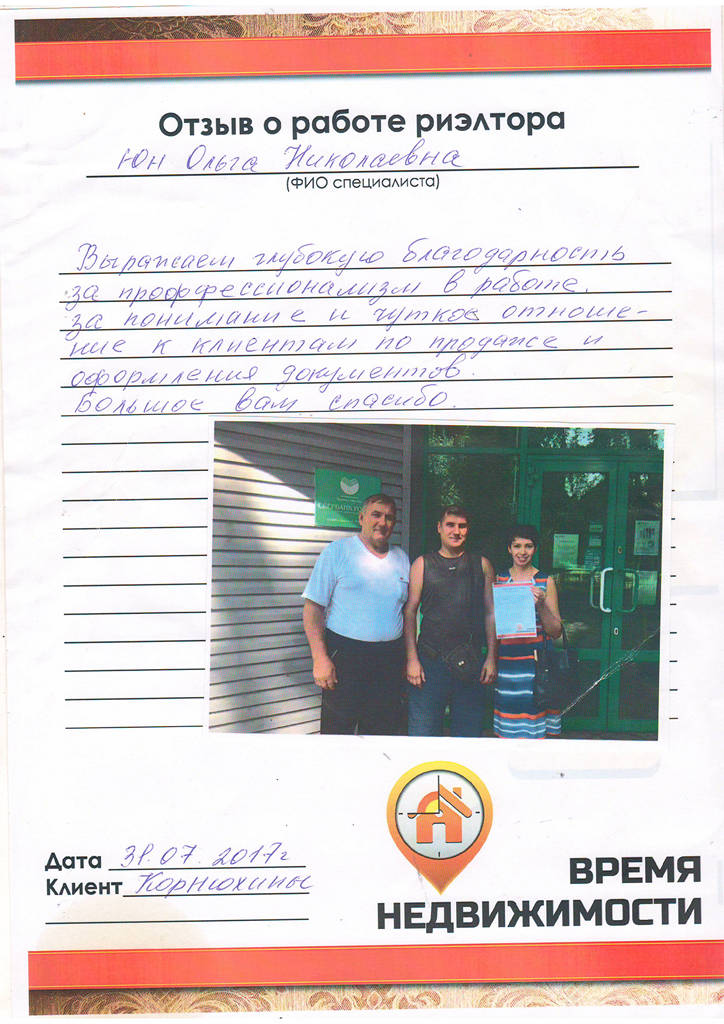 Отзыв о работе риэлтора
Юн Ольга Николаевна
(ФИО специалиста)
Выражаем глубокую благодарность
за проффессионализм в работе,
за понимание и чуткое отноше-
ние к клиентам по продаже и
оформления документов.
Большое вам спасибо.
СБЕРБАНК
Дата 31.07.2017г
Клиент Корнюхины
ВРЕМЯ
НЕДВИЖИМОСТИ